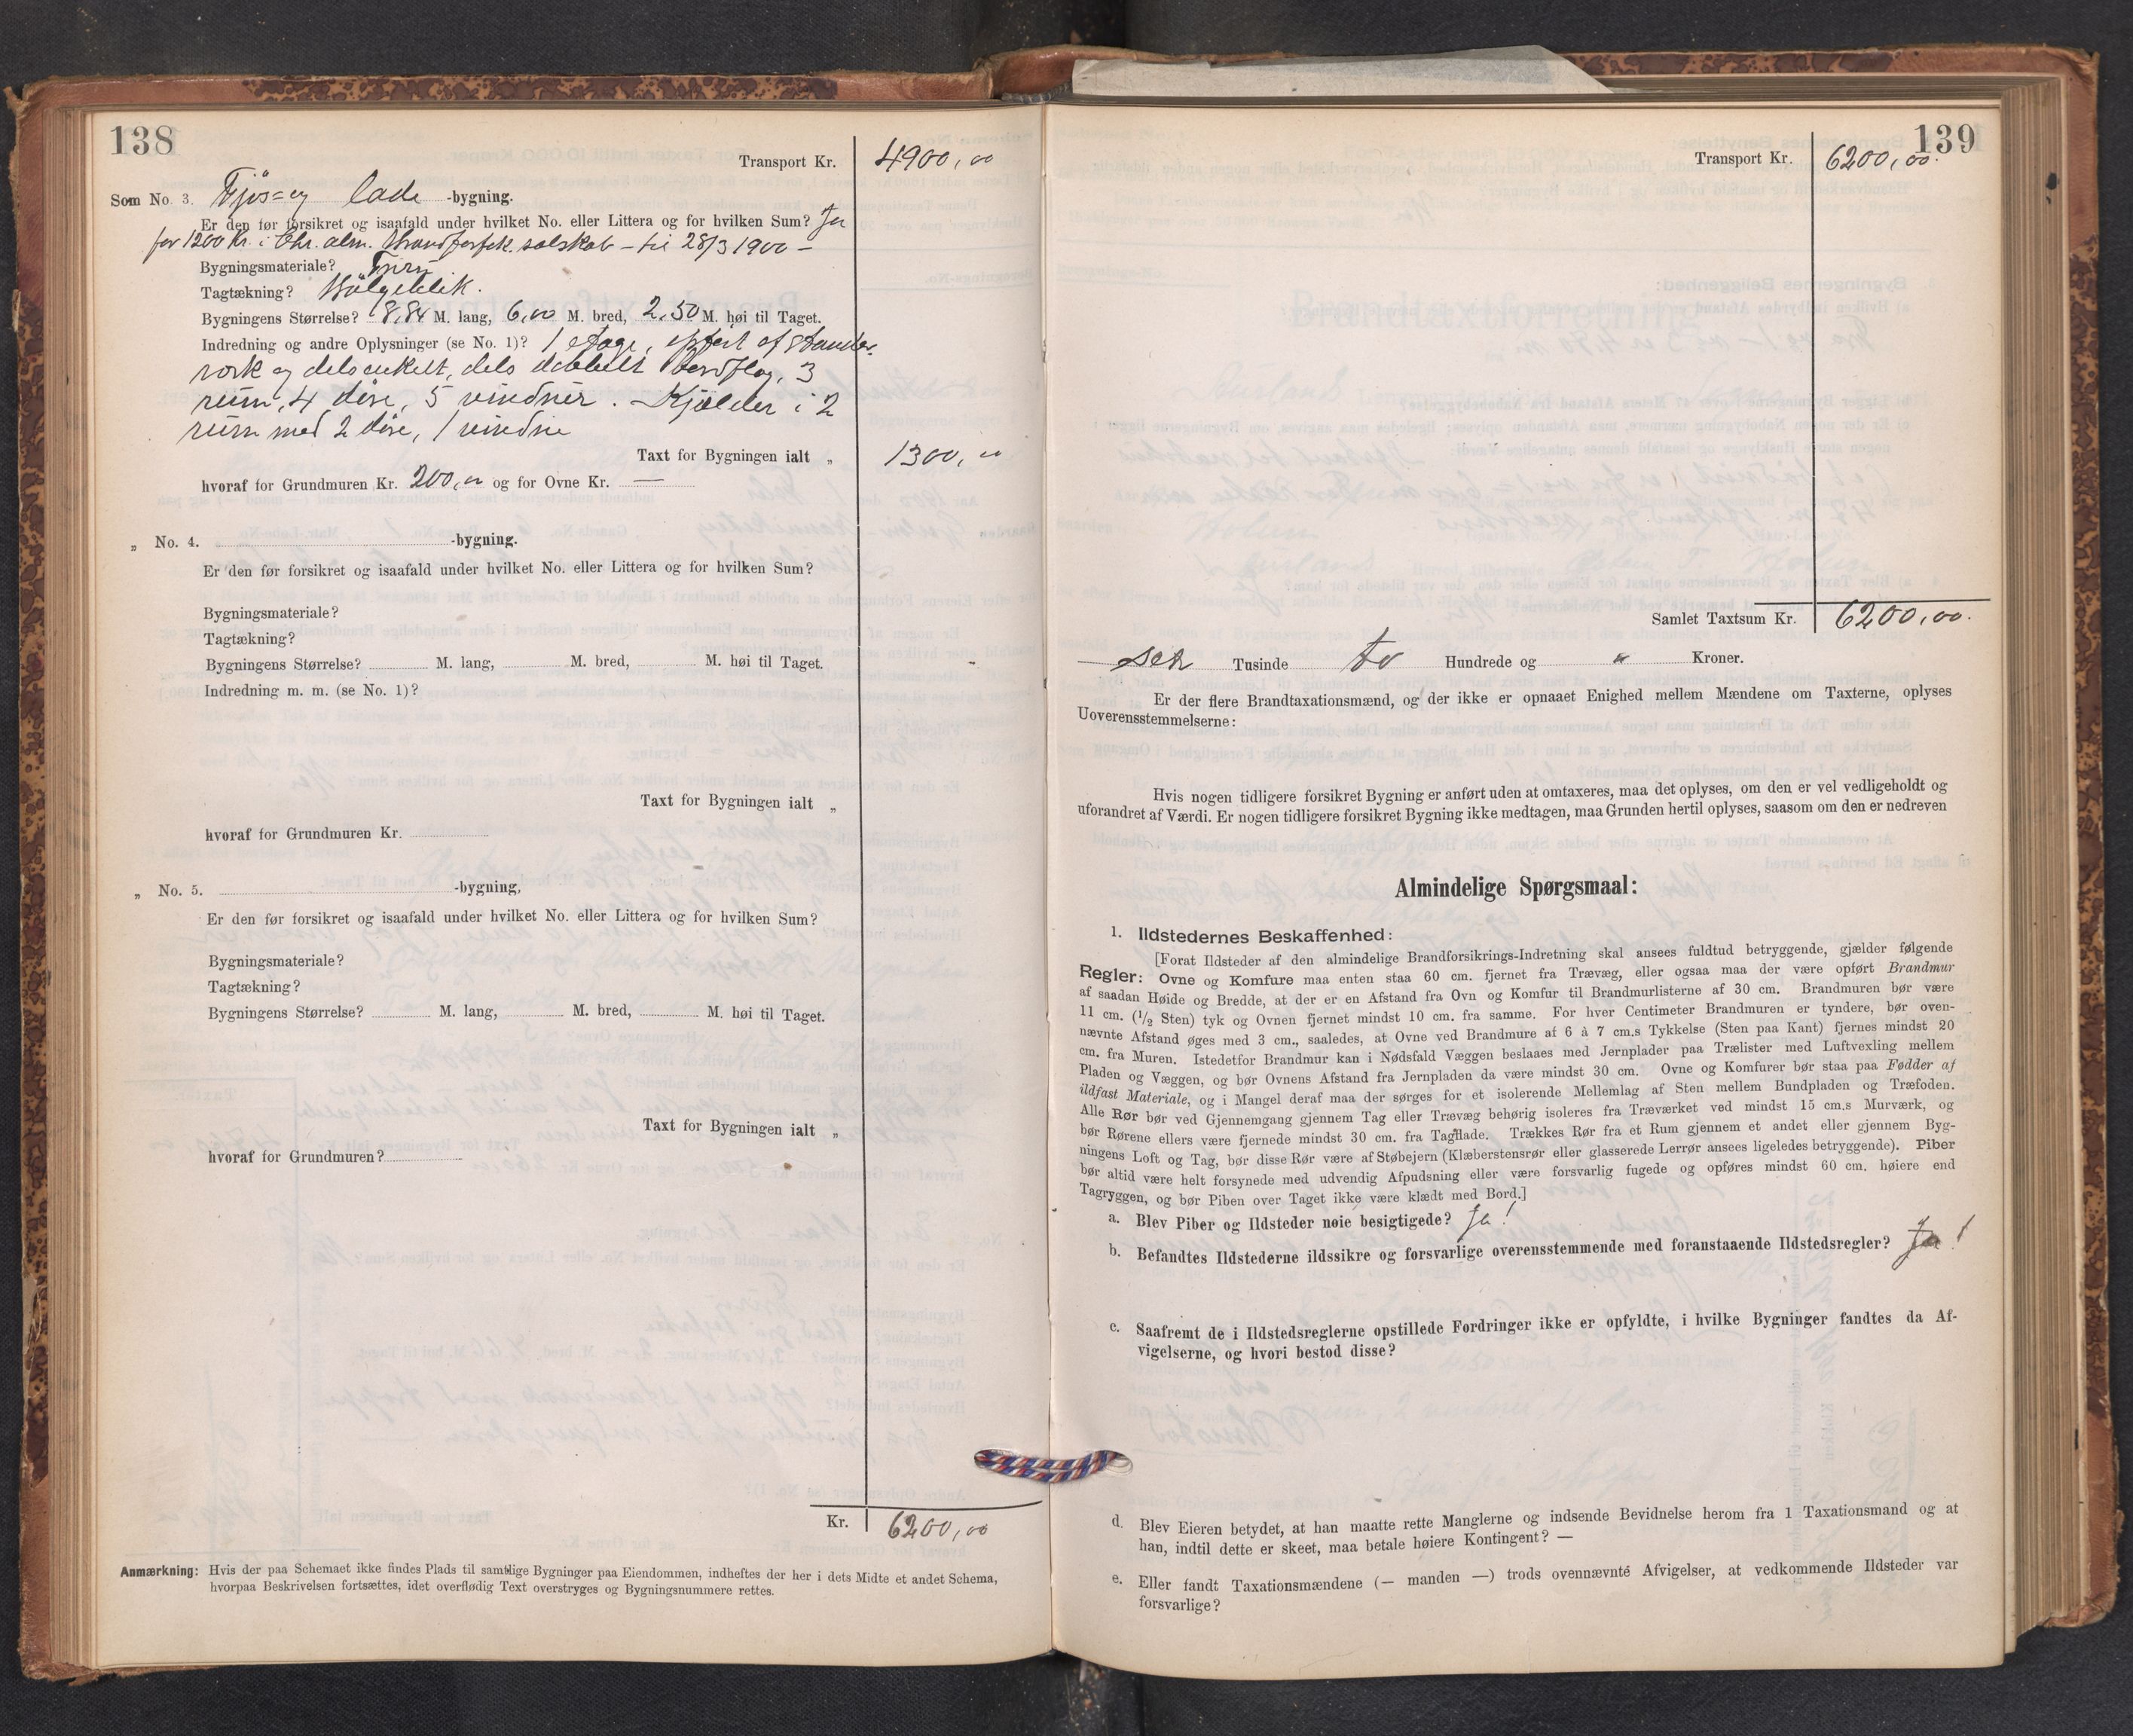 138
Transport Kr. 4900,00
Som No. 3. Fjøs= og lade -bygning.
Er den før forsikret og isaafald under hvilket No. eller Littera og for hvilken Sum? Ja
for 1200 Kr. i Chr. alm. brandforsik. selskab – til 28/3 1900 –
Bygningsmateriale? Furu
Tagtækning? Bølgeblik.
Bygningens Størrelse? 8,84 M. lang, 6,00 M. bred, 2,50 M. høi til Taget.
Indredning og andre Oplysninger (se No. 1)? 1 etage, opført af stander-
værk og dels enkelt, dels dobbelt bordflag, 3
rum, 4 døre, 5 vinduer. – Kjælder i 2
rum med 2 døre, 1 vindue
Taxt for Bygningen ialt „ 1300,00
hvoraf for Grundmuren Kr. 200,00 og for Ovne Kr. —
„ No. 4. -bygning.
Er den før forsikret og isaafald under hvilket No. eller Littera og for hvilken Sum?
Bygningsmateriale?
Tagtækning?
Bygningens Størrelse? M. lang, M. bred, M. høi til Taget.
Indredning m. m. (se No. 1)?
Taxt for Bygningen ialt „
hvoraf for Grundmuren Kr.
„ No. 5. -bygning,
Er den før forsikret og isaafald under hvilket No. eller Littera og for hvilken Sum?
Bygningsmateriale?
Tagtækning?
Bygningens Størrelse? M. lang, M. bred, M. høi til Taget.
Taxt for Bygningen ialt „
hvoraf for Grundmuren?
Kr. 6200,00
Anmærkning: Hvis der paa Schemaet ikke findes Plads til samtlige Bygninger paa Eiendommen, indheftes der her i dets Midte et andet Schema,
hvorpaa Beskrivelsen fortsættes, idet overflødig Text overstryges og Bygningsnummere rettes.
139
Transport Kr. 6200,00.
Samlet Taxtsum Kr. 6200,00.
sex Tusinde to Hundrede og " Kroner.
Er der flere Brandtaxationsmænd, og der ikke er opnaaet Enighed mellem Mændene om Taxterne, oplyses
Uoverensstemmelserne:
Hvis nogen tidligere forsikret Bygning er anført uden at omtaxeres, maa det oplyses, om den er vel vedligeholdt og
uforandret af Værdi. Er nogen tidligere forsikret Bygning ikke medtagen, maa Grunden hertil oplyses, saasom om den er nedreven
Almindelige Spørgsmaal:
1. Ildstedernes Beskaffenhed:
[Forat Ildsteder af den almindelige Brandforsikrings-Indretning skal ansees fuldtud betryggende, gjælder følgende
Regler: Ovne og Komfure maa enten staa 60 cm. fjernet fra Trævæg, eller ogsaa maa der være opført Brandmur
af saadan Høide og Bredde, at der er en Afstand fra Ovn og Komfur til Brandmurlisterne af 30 cm. Brandmuren bør være
11 cm. (1/2 Sten) tyk og Ovnen fjernet mindst 10 cm. fra samme. For hver Centimeter Brandmuren er tyndere, bør oven-
nævnte Afstand øges med 3 cm., saaledes, at Ovne ved Brandmure af 6 à 7 cm.s Tykkelse (Sten paa Kant) fjernes mindst 20
cm. fra Muren. Istedetfor Brandmur kan i Nødsfald Væggen beslaaes med Jernplader paa Trælister med Luftvexling mellem
Pladen og Væggen, og bør Ovnens Afstand fra Jernpladen da være mindst 30 cm. Ovne og Komfurer bør staa paa Fødder af
ildfast Materiale, og i Mangel deraf maa der sørges for et isolerende Mellemlag af Sten mellem Bundpladen og Træfoden.
Alle Rør bør ved Gjennemgang gjennem Tag eller Trævæg behørig isoleres fra Træværket ved mindst 15 cm.s Murværk, og
bør Rørene ellers være fjernede mindst 30 cm. fra Tagflade. Trækkes Rør fra et Rum gjennem et andet eller gjennem Byg-
ningens Loft og Tag, bør disse Rør være af Støbejern (Klæberstensrør eller glasserede Lerrør ansees ligeledes betryggende). Piber
bør altid være helt forsynede med udvendig Afpudsning eller være forsvarlig fugede og opføres mindst 60 cm. høiere end
Tagryggen, og bør Piben over Taget ikke være klædt med Bord.]
a. Blev Piber og Ildsteder nøie besigtigede? Ja!
b. Befandtes Ildstederne ildssikre og forsvarlige overensstemmende med foranstaaende Ildstedsregler? Ja!
c. Saafremt de i Ildstedsreglerne opstillede Fordringer ikke er opfyldte, i hvilke Bygninger fandtes da Af-
vigelserne, og hvori bestod disse?
d. Blev Eieren betydet, at han maatte rette Manglerne og indsende Bevidnelse herom fra 1 Taxationsmand og at
han, indtil dette er skeet, maa betale høiere Kontingent? —
e. Eller fandt Taxationsmændene (— manden —) trods ovennævnte Afvigelser, at vedkommende Ildsteder var
forsvarlige?